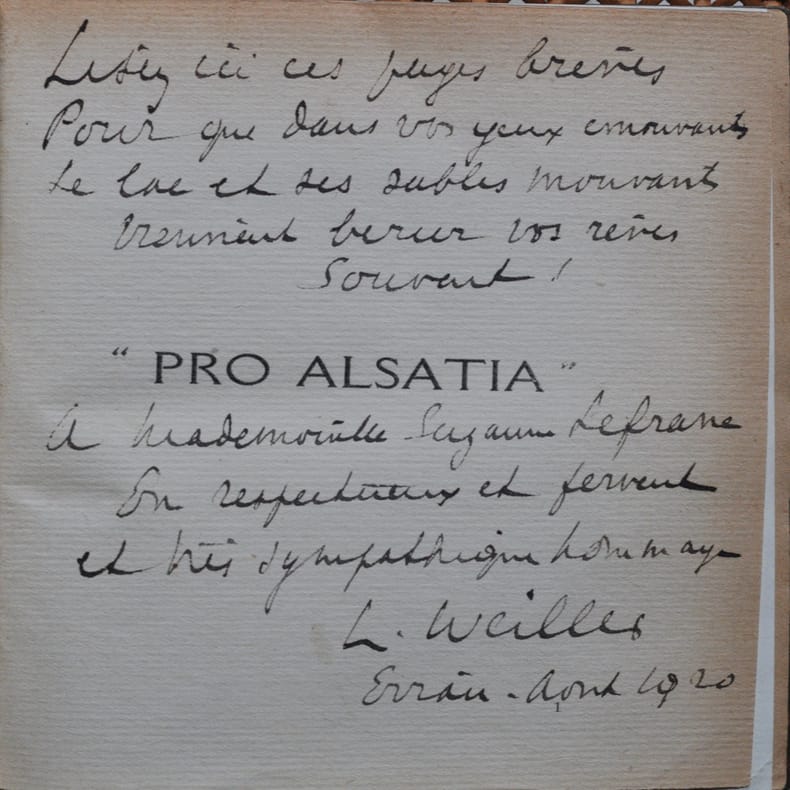 Lisez ici ces pages brèves
Pour que dans vos yeux émouvants
Le lac et ses sables mouvants
Viennent bercer vos rêves
Souvent !
" PRO ALSATIA "
A Mademoiselle Suzanne Lefranc
En respectueux et fervent
et très sympathique hommage
L. Weiller
Août 1920
1